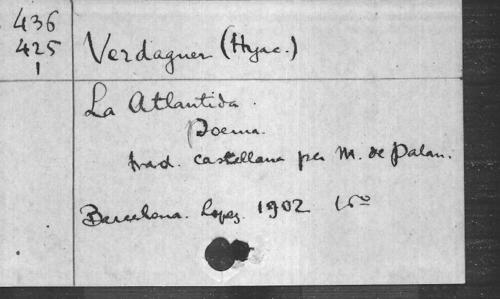 436
425
1
Verdaguer (Hyac.)
La Atlantida.
Poema.
trad. castellana per M. de Palau.
Barcelona. Lopez. 1902 16º